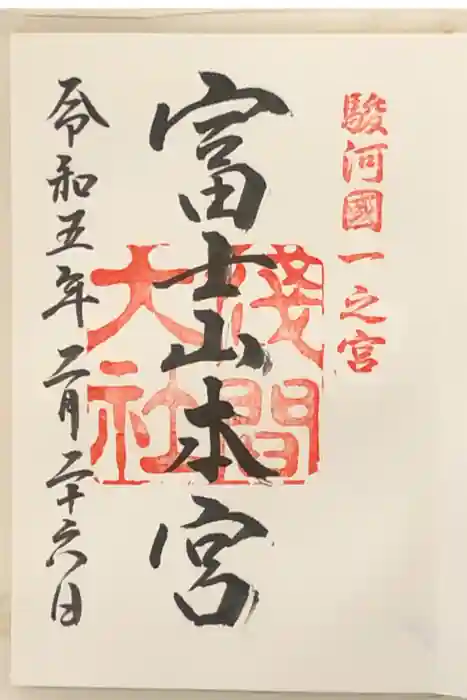 駿河國一之宮
富士山本宮
淺間
大社
令和五年二月二十六日